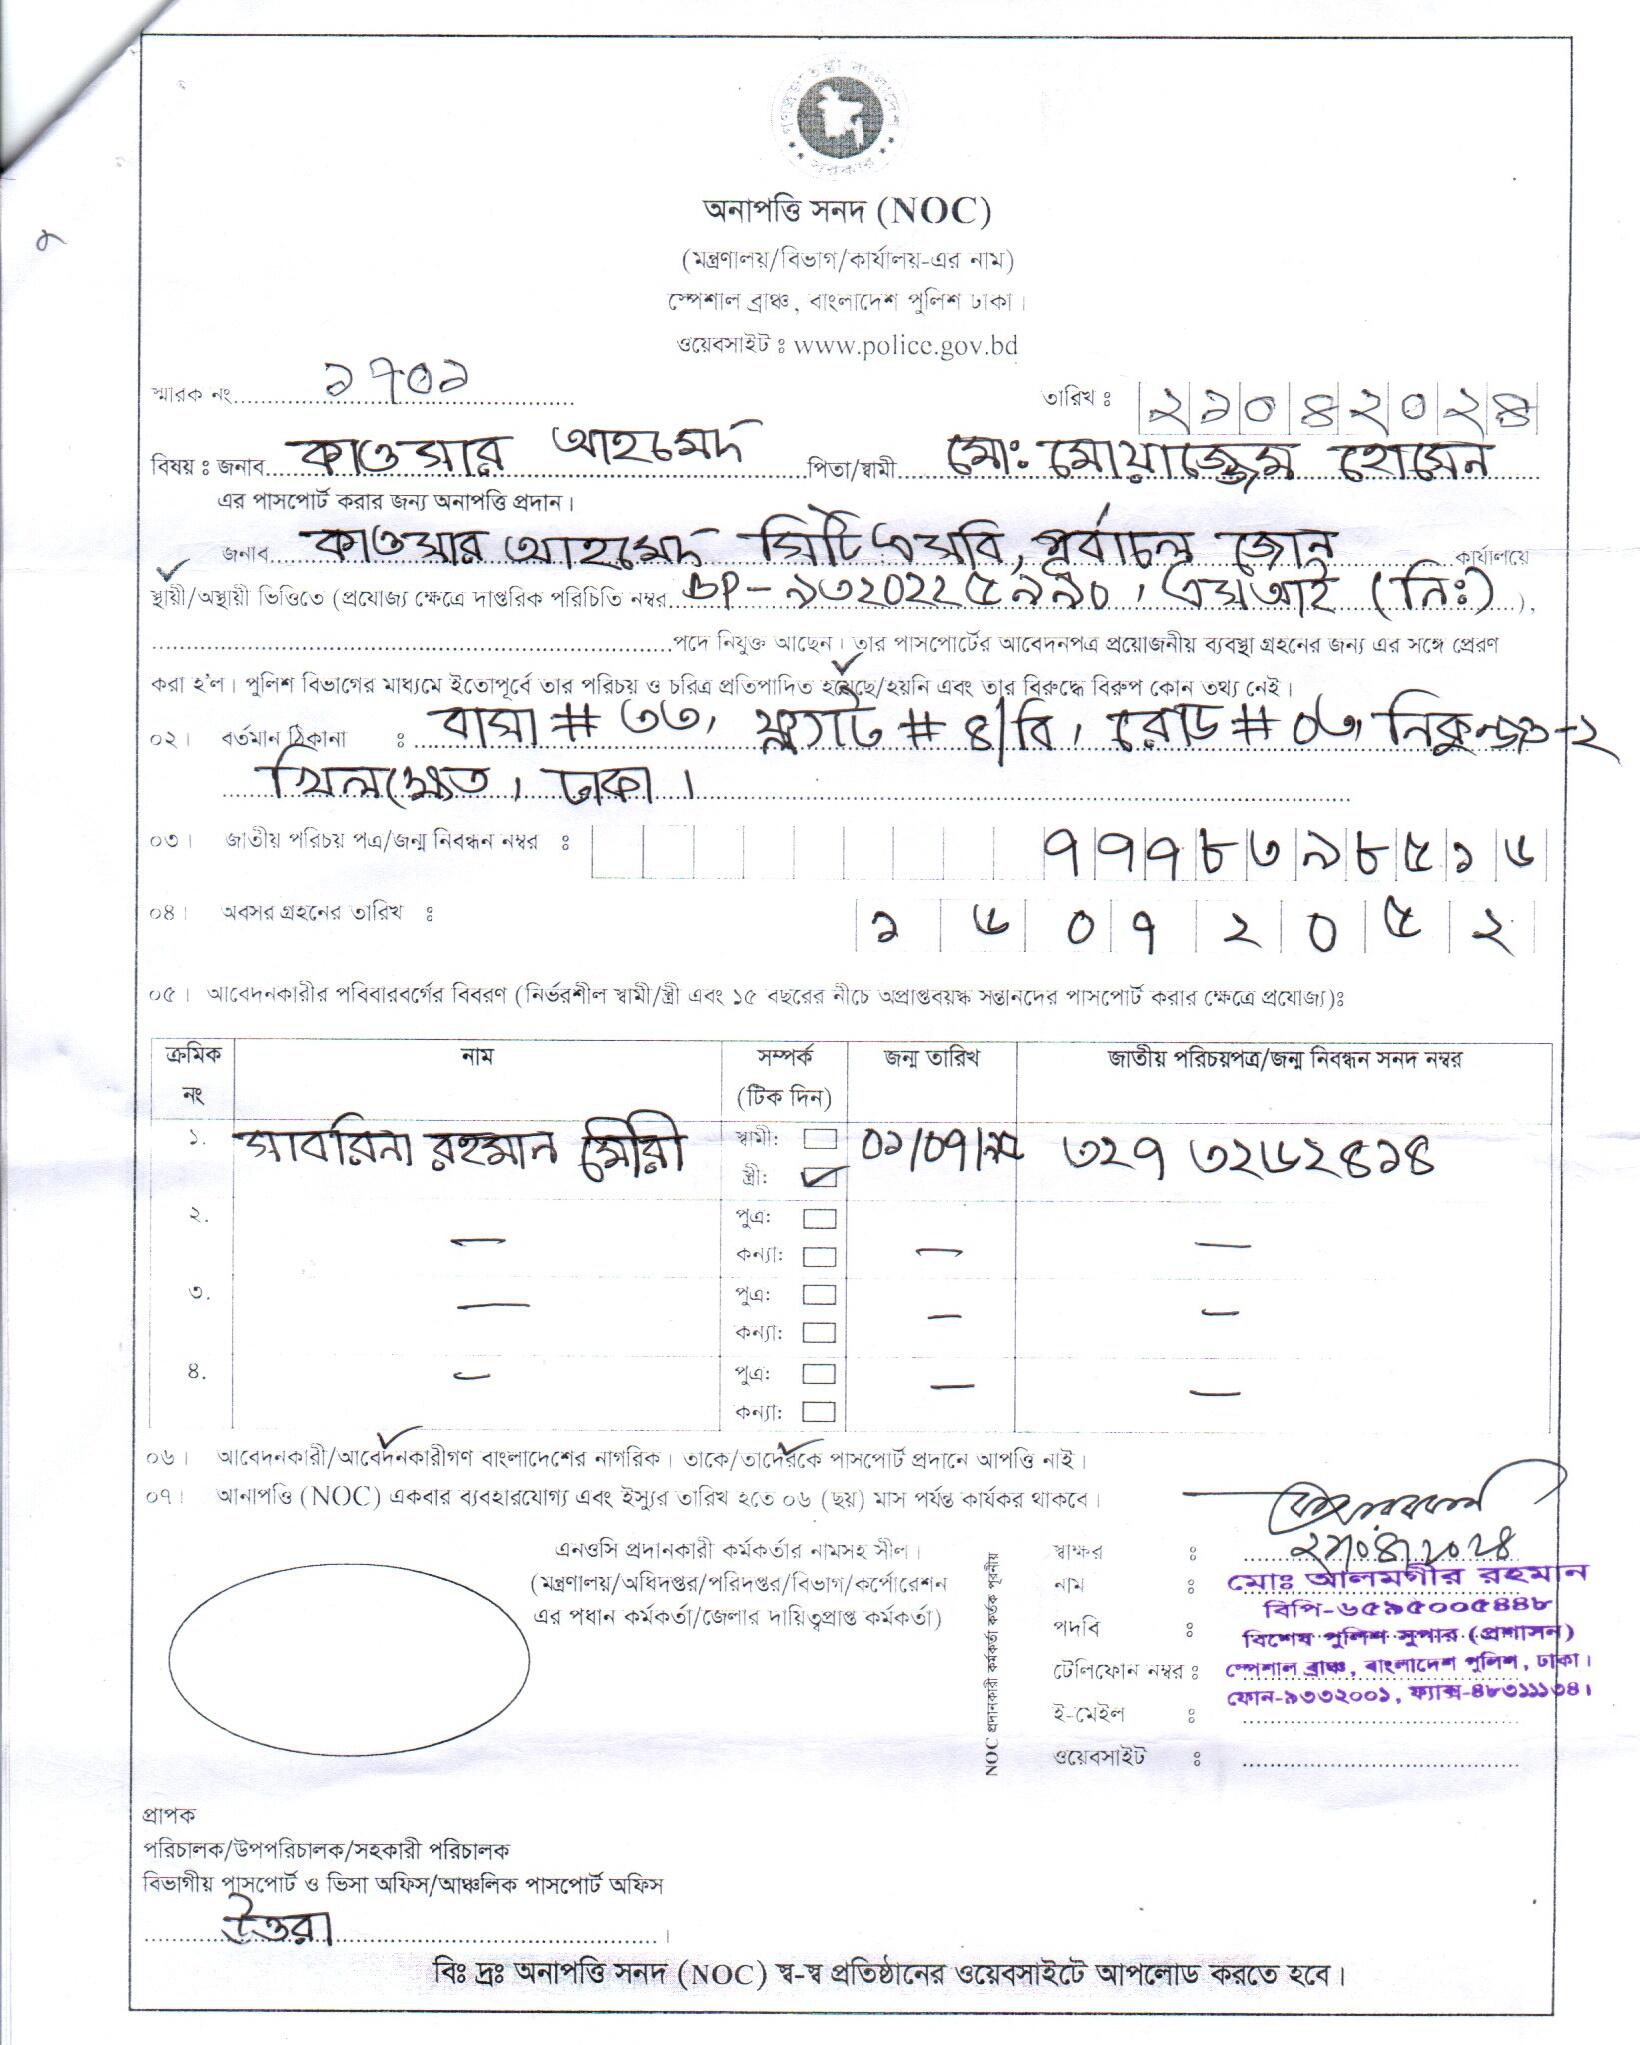 গণপ্রজাতন্ত্রী বাংলাদেশ সরকার
অনাপত্তি সনদ (NOC)
(মন্ত্রণালয়/বিভাগ/কার্যালয়-এর নাম)
স্পেশাল ব্রাঞ্চ, বাংলাদেশ পুলিশ ঢাকা।
ওয়েবসাইট ঃ www.police.gov.bd
স্মারক নং ১৭০১ তারিখ ঃ ২১০৪২০২৪
বিষয় ঃ জনাব কাওসার আহমেদ পিতা/স্বামী মোঃ মোয়াজ্জেম হোসেন
এর পাসপোর্ট করার জন্য অনাপত্তি প্রদান।
জনাব কাওসার আহমেদ সিটিএসবি, পূর্বাচল জোন কার্যালয়ে
স্থায়ী/অস্থায়ী ভিত্তিতে (প্রযোজ্য ক্ষেত্রে দাপ্তরিক পরিচিতি নম্বর BP-৯৩২০২২৫৯৯০, এসআই (নিঃ) ),
পদে নিযুক্ত আছেন। তার পাসপোর্টের আবেদনপত্র প্রয়োজনীয় ব্যবস্থা গ্রহনের জন্য এর সঙ্গে প্রেরণ
করা হ'ল। পুলিশ বিভাগের মাধ্যমে ইতোপূর্বে তার পরিচয় ও চরিত্র প্রতিপাদিত হয়েছে/হয়নি এবং তার বিরুদ্ধে বিরুপ কোন তথ্য নেই।
০২। বর্তমান ঠিকানা ঃ বাসা # ৩৩, ফ্ল্যাট # ৪/বি, রোড # ০৬, নিকুন্জ-২
খিলক্ষেত, ঢাকা।
০৩। জাতীয় পরিচয় পত্র/জন্ম নিবন্ধন নম্বর ঃ ৭৭৭৮৩৯৮৫১৬
০৪। অবসর গ্রহনের তারিখ ঃ ১৬০৭২০৫২
০৫। আবেদনকারীর পবিবারবর্গের বিবরণ (নির্ভরশীল স্বামী/স্ত্রী এবং ১৫ বছরের নীচে অপ্রাপ্তবয়স্ক সন্তানদের পাসপোর্ট করার ক্ষেত্রে প্রযোজ্য)ঃ
ক্রমিক নং নাম সম্পর্ক (টিক দিন) জন্ম তারিখ জাতীয় পরিচয়পত্র/জন্ম নিবন্ধন সনদ নম্বর
১. সাবরিনা রহমান মৌরী স্বামী: ০১/০৭/ ৩২৭ ৩২৬২৪১৪
স্ত্রী:
২. পুত্র:
কন্যা:
৩. পুত্র:
কন্যা:
৪. পুত্র:
কন্যা:
০৬। আবেদনকারী/আবেদনকারীগণ বাংলাদেশের নাগরিক। তাকে/তাদেরকে পাসপোর্ট প্রদানে আপত্তি নাই।
০৭। আনাপত্তি (NOC) একবার ব্যবহারযোগ্য এবং ইস্যুর তারিখ হতে ০৬ (ছয়) মাস পর্যন্ত কার্যকর থাকবে।
এনওসি প্রদানকারী কর্মকর্তার নামসহ সীল।
(মন্ত্রণালয়/অধিদপ্তর/পরিদপ্তর/বিভাগ/কর্পোরেশন
এর পধান কর্মকর্তা/জেলার দায়িত্বপ্রাপ্ত কর্মকর্তা)
NOC প্রদানকারী কর্মকর্তা কর্তৃক পূরনীয়
স্বাক্ষর ঃ ২১/০৪/২০২৪
নাম ঃ মোঃ আলমগীর রহমান
বিপি-৬৫৯৫০০৫৪৪৮
পদবি ঃ বিশেষ পুলিশ সুপার (প্রশাসন)
টেলিফোন নম্বর ঃ স্পেশাল ব্রাঞ্চ, বাংলাদেশ পুলিশ, ঢাকা।
ফোন-৯৩৩২০০১, ফ্যাক্স-৪৮৩১১১৩৪।
ই-মেইল ঃ
ওয়েবসাইট ঃ
প্রাপক
পরিচালক/উপপরিচালক/সহকারী পরিচালক
বিভাগীয় পাসপোর্ট ও ভিসা অফিস/আঞ্চলিক পাসপোর্ট অফিস
উত্তরা
বিঃ দ্রঃ অনাপত্তি সনদ (NOC) স্ব-স্ব প্রতিষ্ঠানের ওয়েবসাইটে আপলোড করতে হবে।